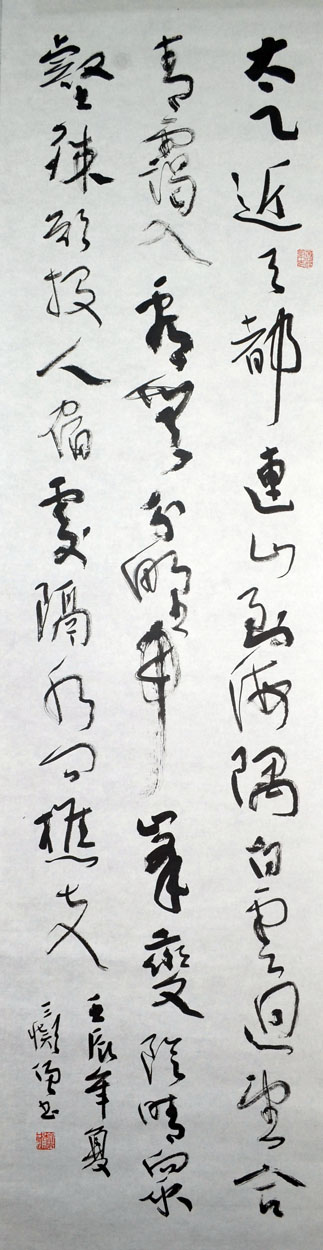 太乙近天都連山到海隅白雲迴望合
青靄入看無分野中峯變陰晴眾
壑殊欲投人宿處隔水問樵夫
壬辰年夏